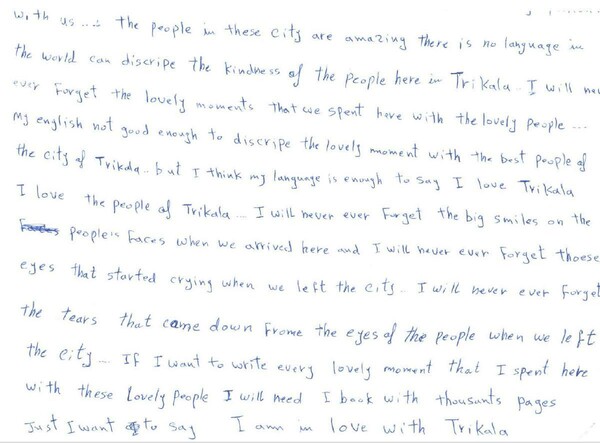 with us .... the people in these city are amazing there is no language in
the world can discripe the kindness of the people here in Trikala.. I will
ever Forget the lovely moments that we spent here with the lovely people ...
My english not good enough to discripe the lovely moment with the best people of
the city of Trikala.. but I think my language is enough to say I love Trikala
I love the people of Trikala ... I will never ever Forget the big smiles on the
people's Faces when we arrived here and I will never ever Forget thoese
eyes that started crying when we left the city.. I will never ever Forget
the tears that came down Frome the eyes of the people when we left
the city... IF I want to write every lovely moment that I spent here
with these Lovely people I will need I book with thousants pages
Just I want to say I am in love with Trikala